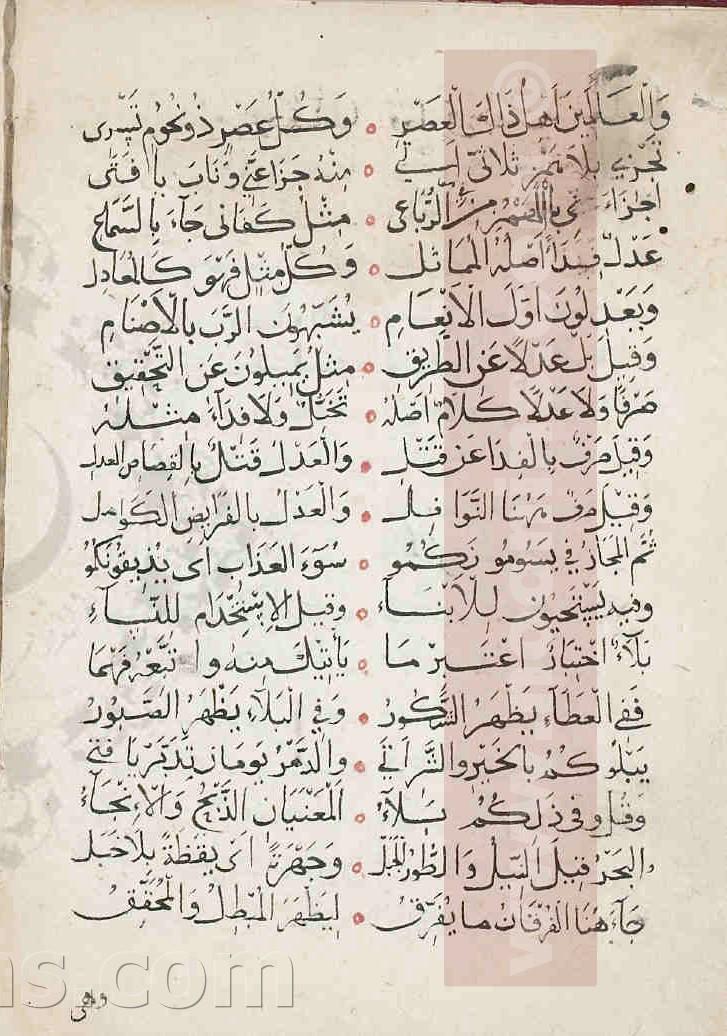 وَالْعَالَمِينَ اَهْلُ ذَاكَ الْعَصْرِ ० وَكُلُّ عَصْرٍ ذُو نُحُومٍ تَسْرِى
تَجْزِي بِلَا هَمْزٍ ثُلَاثِيّ ० مِنْهُ جَزَا عَنِّي وَنَابَ يَا فَتَى
اَجْزَاءَ بِالْهَمْزِ مِنَ الرُّبَاعِى ० مِثْلُ كَفَانِى جَآءَ بِالسَّمَاعِ
عَدْلٌ فِدَآءٌ اَصْلُهُ الْمُمَاثِل ० وَكُلُّ مِثْلٍ فَهْوَ كَالْمُعَادِل
وَيَعْدِلُونَ اَوَّلَ الْاَنْعَامِ ० يُشَبِّهُونَ الرَّبَّ بِالْاَصْنَامِ
وَقِيلَ بَلْ عَدْلًا عَنِ الطَّرِيقِ ० مِثْلُ يَمِيلُونَ عَنِ التَّحْقِيقِ
صَرْفًا وَلَا عَدْلًا كَلَامٌ اَصْلُهُ ० تَحَيُّلٌ وَلَا فِدَآءَ مِثْلُهُ
وَقِيلَ صَرْفٌ بِالْفِدَا عَنْ قَتْلِ ० وَالْعَدْلُ قَتْلٌ بِالْقِصَاصِ الْعَدْلِ
وَقِيلَ صَرْفٌ هَهُنَا النَّوَافِل ० وَالْعَدْلُ بِالْفَرَايِضِ الْكَوَامِل
ثُمَّ الْمَجَازُ فِي يَسُومُونَكُمُو ० سُوٓءَ الْعَذَابِ اَى يُذِيقُونَكُمُو
وَفِيهِ يَسْتَحْيُونَ لِلْاَبْنَآءِ ० وَقِيلَ الْاِسْتِخْدَامُ لِلنِّسَآءِ
بَلَآءٌ اخْتِبَارٌ اعْتَبِرْ مَا ० يَأْتِيكَ مِنْهُ وَاتَّبِعْهُ فَهْمَا
فَفِى الْعَطَآءِ يَظْهَرُ الشَّكُورُ ० وَفِى الْبَلَآءِ يَظْهَرُ الصَّبُورُ
يَبْلُوكُمُ بِالْخَيْرِ وَالشَّرِّ اَتَى ० وَالدَّهْرُ يَوْمَانِ تَدَبَّرْ يَا فَتَى
وَقُلْ وَفِى ذَلِكُمُ بَلَآءُ ० الْمَعْنَيَانِ الذَّبْحُ وَالْاِنْجَآءُ
وَالْبَحْرُ قِيلَ النِّيلُ وَالطُّورُ الْجَبَل ० وَجَهْرَةً اَىْ يَقْظَةً بِلَا خَبَل
جَآءَ هُنَا الْفُرْقَانُ مَا يُفَرِّقُ ० لِيَظْهَرَ الْمُبْطِلُ وَالْمُحَقِّقُ
وهى